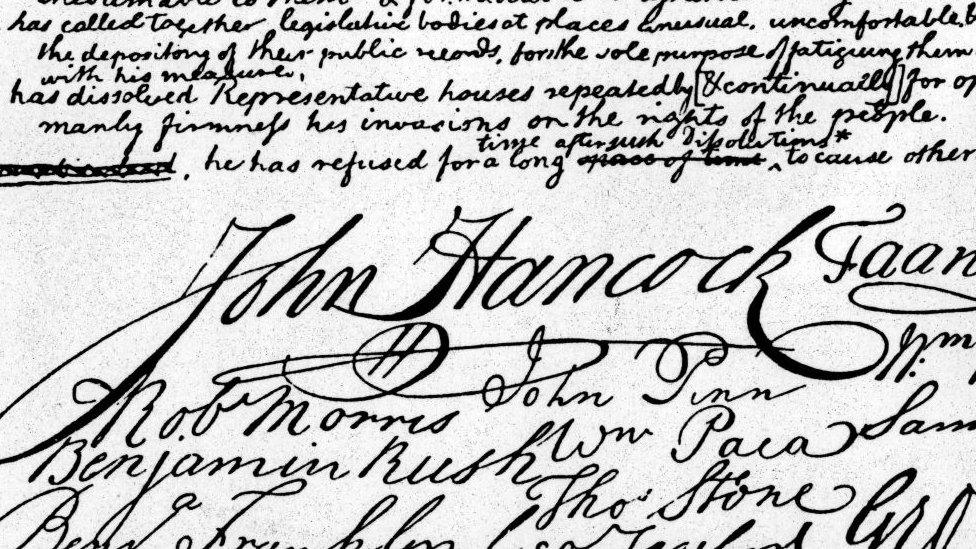 has called together legislative bodies at places unusual, uncomfortable, &
the depository of their public records, for the sole purpose of fatiguing them
with his measures.
has dissolved Representative houses repeatedly [& continually] for op
manly firmness his invasions on the rights of the people.
time after such Dissolutions*
he has refused for a long space of time, to cause other
John Hancock
Rob^t Morris
John Penn
Wm
Benjamin Rush
Wm Paca
Sam
Tho^s Stone
Benj^a Franklin